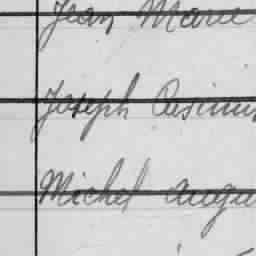 Jean Marie
Joseph Casimir
Michel Augu